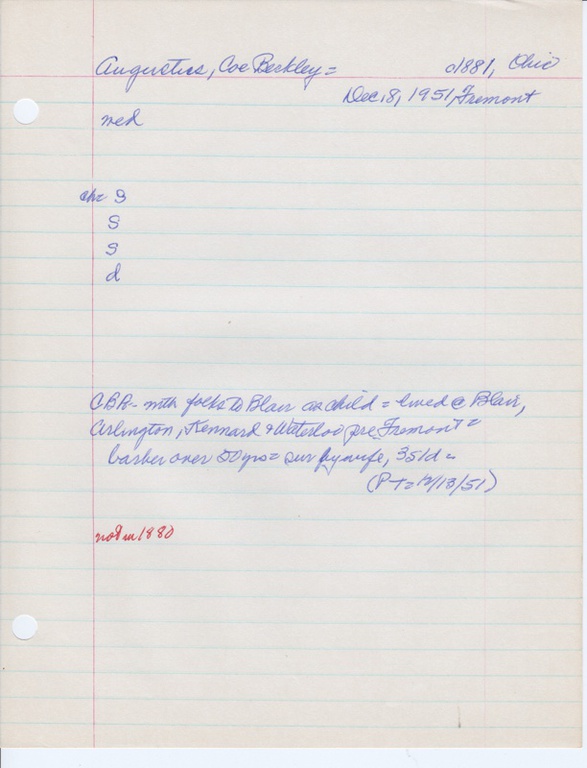 Augustus, Coe Beckley = c1881, Ohio
Dec. 8, 1951, Fremont
med
ch= S
S
S
d
CBA- with folks to Blair as child = lived @ Blair,
Arlington, Kennard & Waterloo pre Fremont =
barber over 50 yrs = sur by wife, 3S1d =
(PT = 12/13/51)
not in 1880